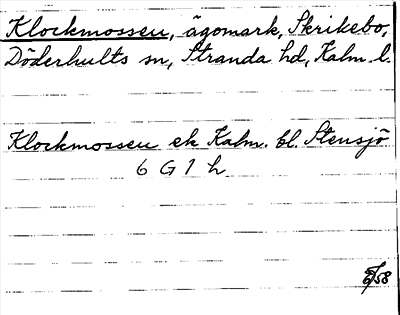 Klockmossen, ägomark, Skrikebo,
Döderhults sn, Stranda hd, Kalm. l.
Klockmossen ek Kalm. bl. Stensjö
6 G 1 h
/58